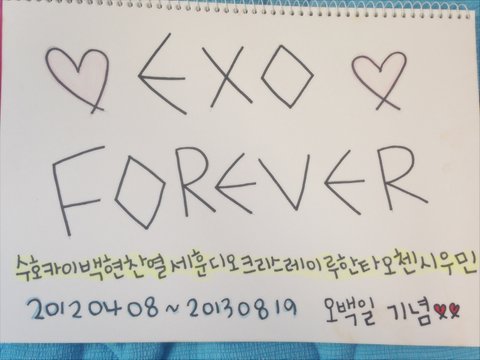 EXO
FOREVER
수호카이백현찬열세훈디오크리스레이루한타오첸시우민
20120408~20130819 오백일 기념